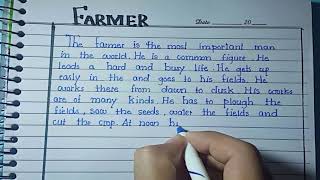 FARMER
Date 20
The farmer is the most important man
in the world. He is a common figure. He
leads a hard and busy life. He gets up
early in the and goes to his fields. He
works there from dawn to dusk. His works
are of many kinds. He has to plough the
fields, sow the seeds, water the fields and
cut the crop. At noon h